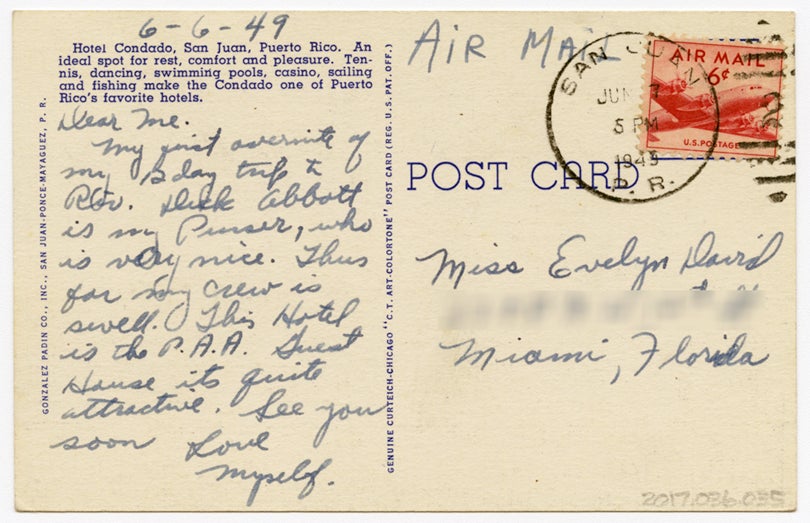 6-6-49
Hotel Condado, San Juan, Puerto Rico. An
ideal spot for rest, comfort and pleasure. Ten-
nis, dancing, swimming pools, casino, sailing
and fishing make the Condado one of Puerto
Rico's favorite hotels.
Dear Me.
My first overnite of
my day trip to
Rio. Dick Abbott
is my Purser, who
is very nice. Thus
far my crew is
swell. This Hotel
is the P.A.A. Guest
House its quite
attractive. See you
soon Love
Myself.
GONZALEZ PADIN CO., INC., SAN JUAN-PONCE-MAYAGUEZ, P. R.
GENUINE CURTEICH-CHICAGO "C. T. ART-COLORTONE" POST CARD (REG. U. S. PAT. OFF.)
AIR MAIL
SAN JUAN
JUN 7
5 PM
1949
P. R.
AIR MAIL
6¢
U.S. POSTAGE
POST CARD
Miss Evelyn David
Miami, Florida
2017.036.035